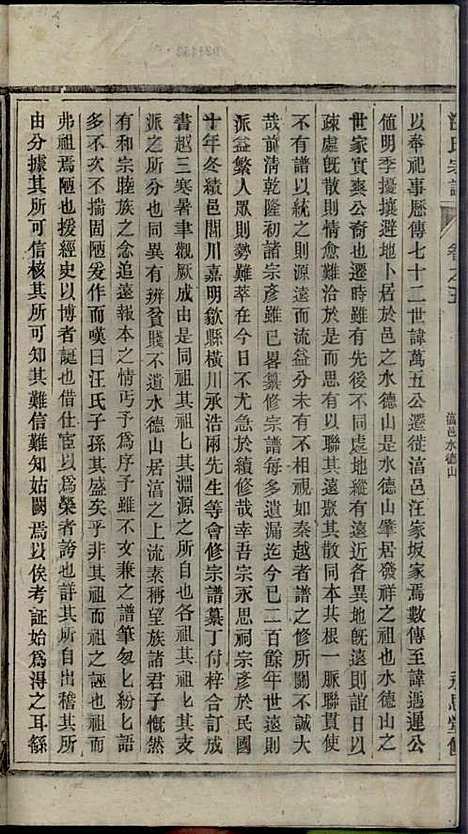 汪氏宗譜
卷之五
湻邑水德山
永思堂修
以奉祀事歷傳七十二世諱萬五公遷徙湻邑汪家坂家焉數傳至諱遇暹公
値明季擾攘避地卜居於邑之水德山是水德山肇居發祥之祖也水德山之
世家實奭公裔也遷時雖有先後不同處地縱有遠近各異地旣遠則誼日以
疎處旣散則情愈難洽於是而思有以聯其遠聚其散同本共根一脈聯貫使
不有譜以統之則宗法不立而流益分未有不相視如秦越者譜之修所關不誠大
哉前淸乾隆初諸宗彥雖已畧纂修宗譜每多遺漏迄今已二百餘年世遠則
派益繁人眾則勢難萃在今日不尤急於續修哉幸吾宗永思祠宗彥於民國
十年冬續邑閬川嘉明歙縣橫川承浩兩先生等會修宗譜纂丁付梓合訂成
書越三寒暑聿觀厥成由是同祖其祖其淵源之所自也各祖其祖其支
派之所分也同異有辨貧賤不遺水德山居湻之上流素稱望族諸君子慨然
有和宗睦族之念追遠報本之情丐予爲序予雖不文兼之譜筆匆匕紛匕語
多不次不揣固陋爰作而嘆曰汪氏子孫其盛矣乎非其祖而祖之誣也祖而
弗祖焉陋也援經史以博者誕也借仕宦以爲榮者誇也詳其所自出稽其所
由分據其所可信核其所可知其難信難知姑闕焉以俟考証始爲得之耳繇